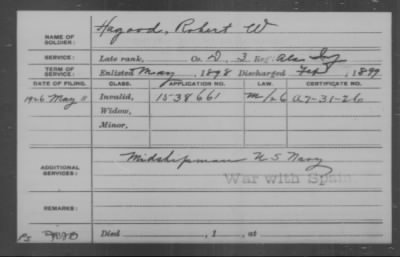 NAME OF SOLDIER: Hagood, Robert W
SERVICE: Late rank, Co. D, 3 Reg. Ala Inf
TERM OF SERVICE: Enlisted May, 1898 Discharged Feb, 1899
DATE OF FILING. CLASS. APPLICATION NO. LAW. CERTIFICATE NO.
1926 May 11 Invalid, 1538661 A-7-31-26
Widow,
Minor,
ADDITIONAL SERVICES: Midshipman U S Navy
War with Spain
REMARKS:
Died , 1 , at